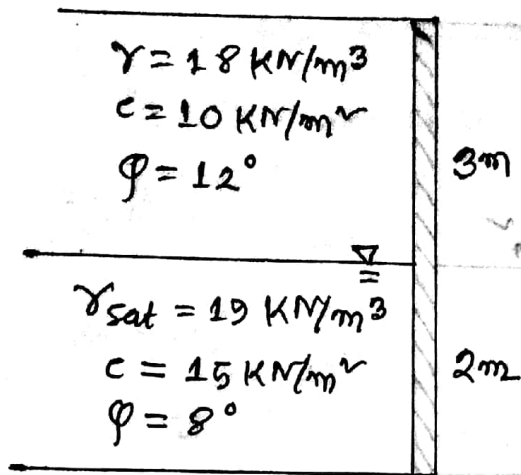 γ = 18 KN/m³
c = 10 KN/m²
φ = 12°
3m
γsat = 19 KN/m³
c = 15 KN/m²
φ = 8°
2m